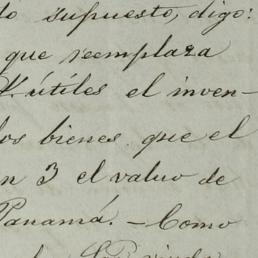 to supuesto, digo:
que reemplaza
Y. útiles el inven-
los bienes que el
n 3 el valuo de
Panamá. - Como